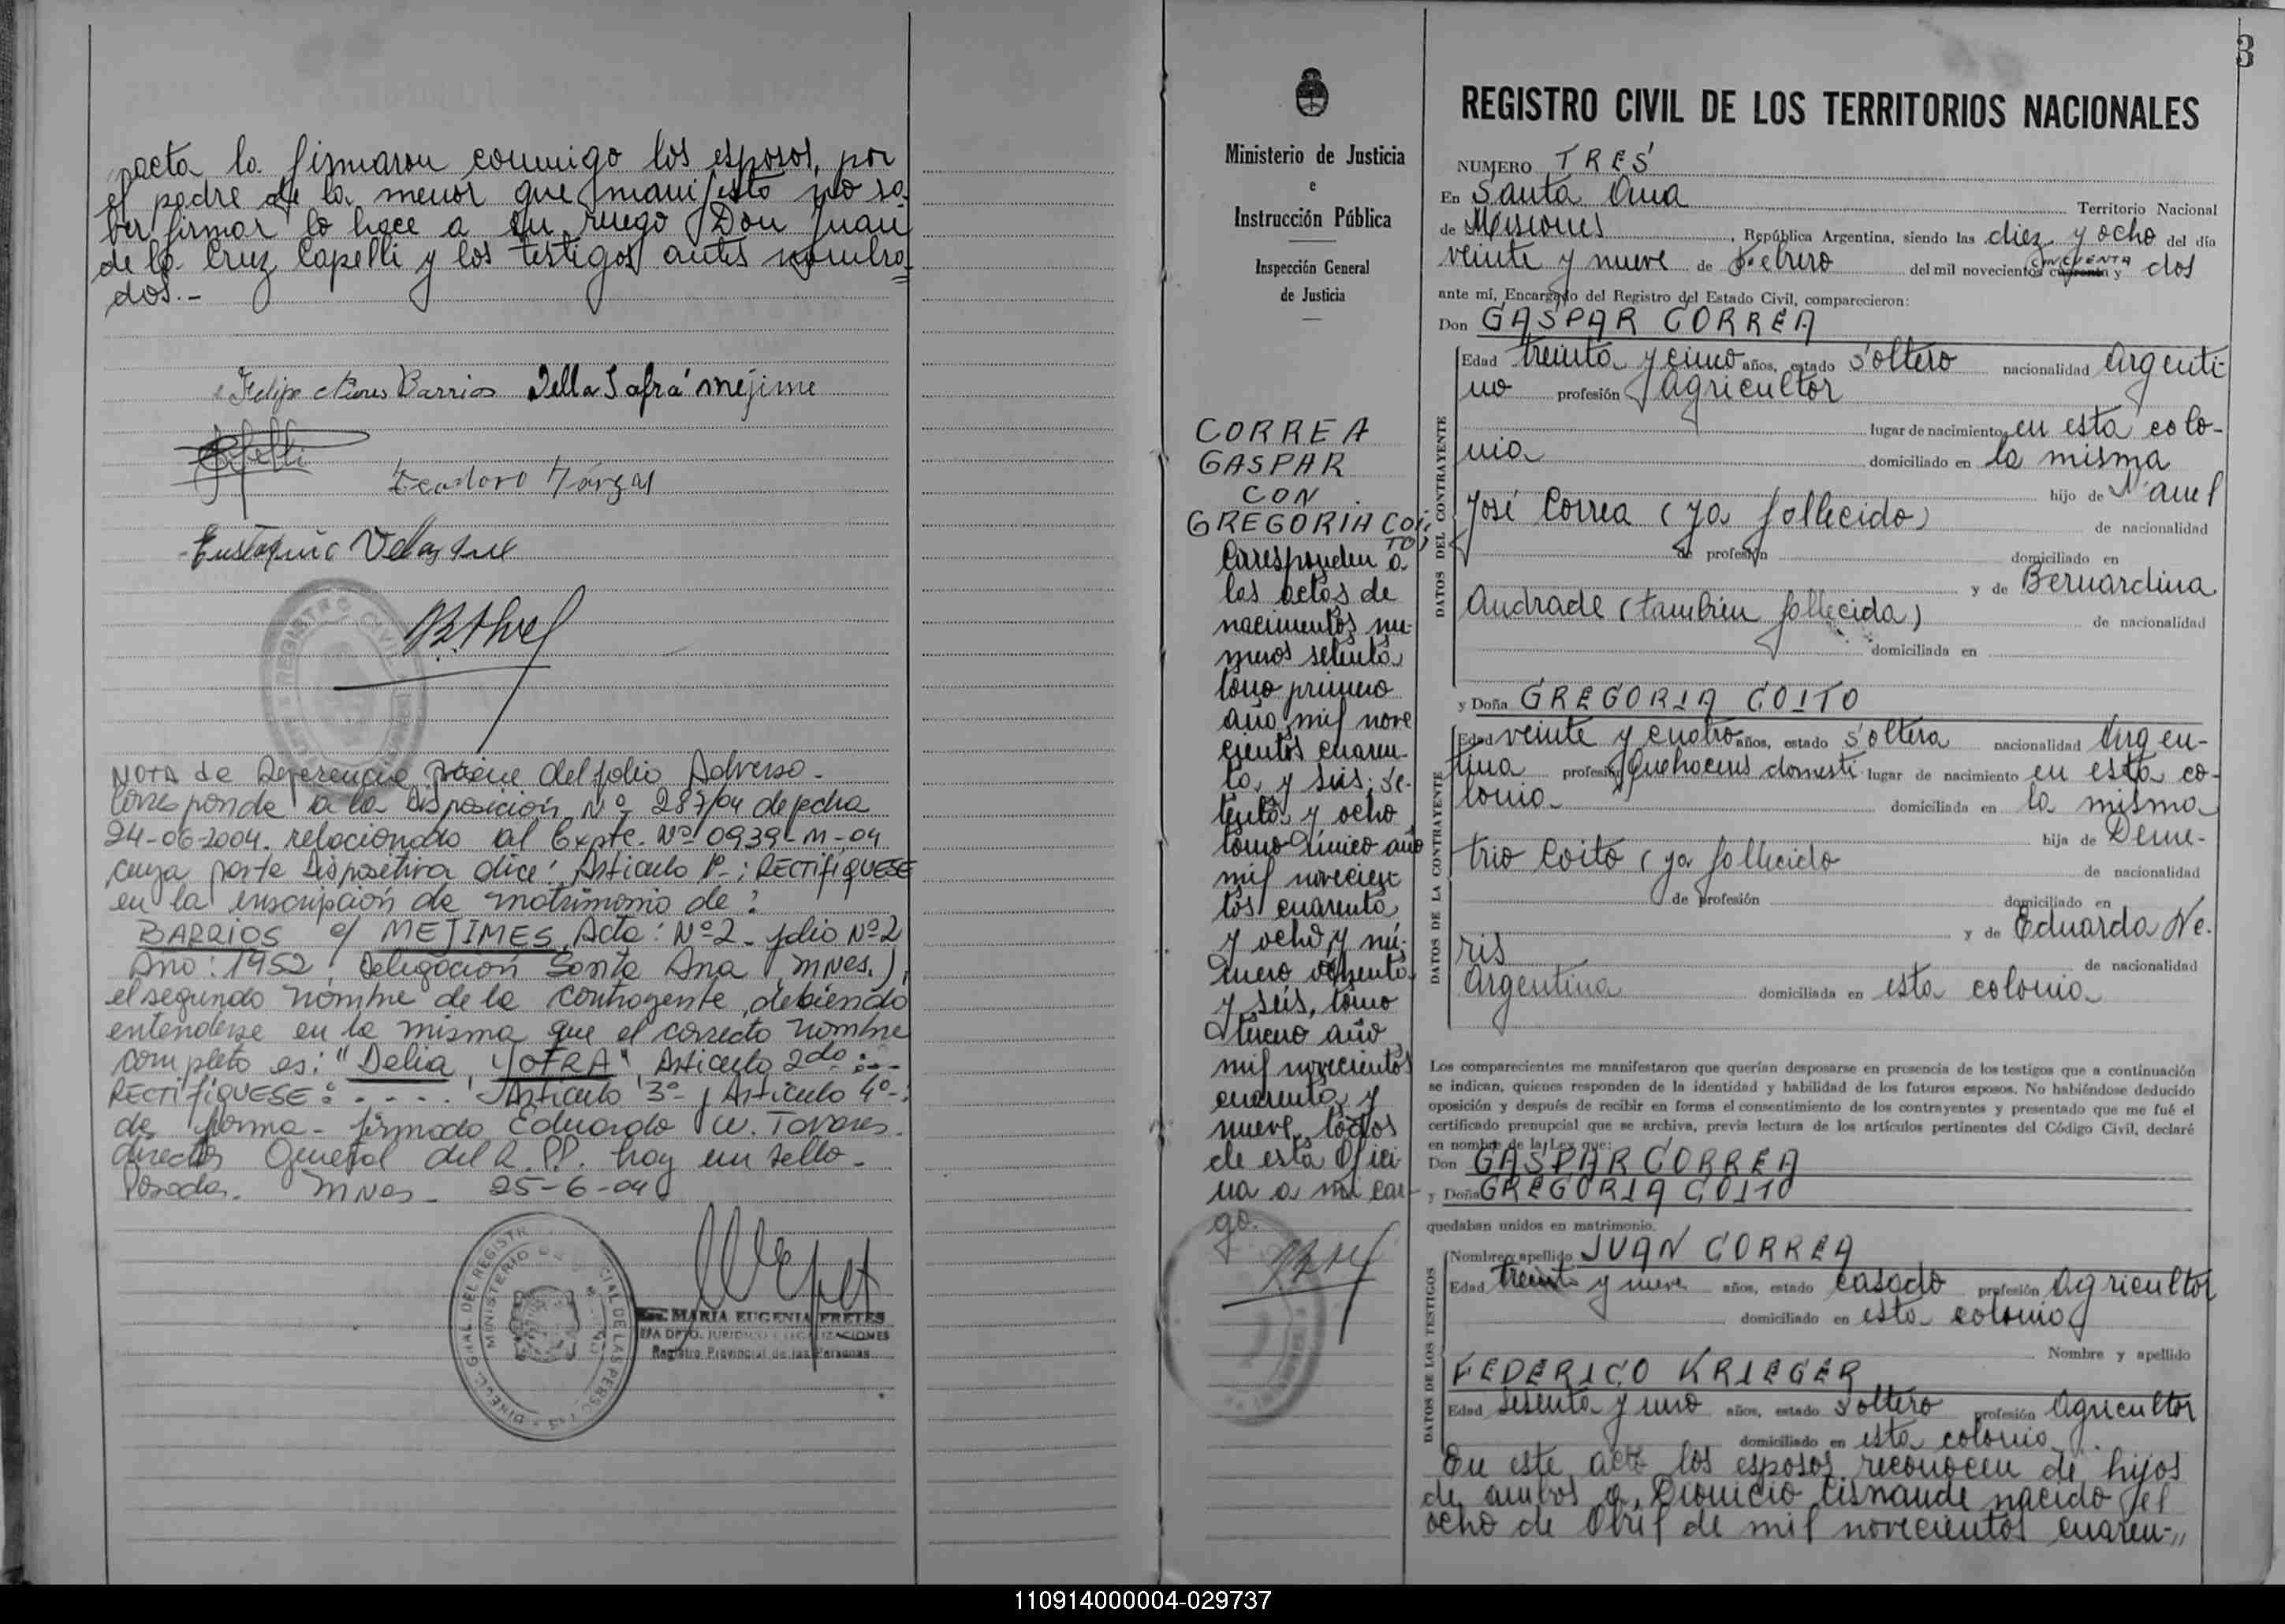 acta la firmaron conmigo los esposos, por
el padre de la menor que manifesto no sa-
ber firmar lo hace a su ruego Don Juan
de la Cruz Capelli y los testigos antes nombra-
dos.-
Felipe Nires Barrios Della Jafrá méjime
Teodoro Vargas
Eustaquio Velasque
NOTA de Referencia viene del folio Adverso-
Corresponde a la Disposición Nº 287/04 de fecha
24-06-2004. relacionado al Expte. Nº 0939-M-04
cuya parte Dispositiva dice: Articulo 1º-: RECTIFIQUESE
en la inscripción de matrimonio de:
BARRIOS c/ MEJIMES, Acta: Nº2- folio Nº2
Año: 1952, Delegación Santa Ana (Mnes.),
el segundo nombre de la contrayente, debiendo
entenderse en la misma que el correcto nombre
completo es: "Delia YOFRA", Articulo 2do:-
RECTIFIQUESE: . . . . Articulo 3º-, Articulo 4º-:
de forma- firmado Eduardo W. Tavares-
director General del R.P.P. hay un sello-
Posadas- Mnes- 25-6-04
MARIA EUGENIA FRETES
DPTO. JURIDICO Y LEGALIZACIONES
Registro Provincial de las Personas
3
Ministerio de Justicia
e
Instrucción Pública
Inspección General
de Justicia
CORREA
GASPAR
CON
GREGORIA COI-
TO,
Corresponden a
las actas de
nacimientos nu-
meros setenta
tomo primero
año mil nove
cientos cuaren-
ta y seis; se-
tenta y ocho
tomo único año
mil novecien-
tos cuarenta
y ocho y nú-
mero ochenta
y seis, tomo
tercero año
mil novecientos
cuarenta y
nueve, todos
de esta Ofici
na a mi car-
go.
REGISTRO CIVIL DE LOS TERRITORIOS NACIONALES
NUMERO TRES
En Santa Ana Territorio Nacional
de Misiones, República Argentina, siendo las diez y ocho del día
veinte y nueve de febrero del mil novecientos cuarenta y CINCUENTA dos
ante mí, Encargado del Registro del Estado Civil, comparecieron:
Don GASPAR CORREA
DATOS DEL CONTRAYENTE
Edad treinta y cinco años, estado soltero nacionalidad Argenti-
no profesión Agricultor
lugar de nacimiento en esta colo-
nia domiciliado en la misma
hijo de Manuel
José Correa (ya fallecido) de nacionalidad
de profesión domiciliado en
y de Bernardina
Andrade (tambien fallecida) de nacionalidad
domiciliada en
y Doña GREGORIA COITO
DATOS DE LA CONTRAYENTE
Edad veinte y cuatro años, estado soltera nacionalidad Argen-
tina profesión Quehaceres domesti lugar de nacimiento en esta co-
lonia domiciliada en la misma
hija de Deme-
trio Coito (ya fallecido de nacionalidad
de profesión domiciliado en
y de Eduarda Ne-
ris de nacionalidad
Argentina domiciliada en esta colonia
Los comparecientes me manifestaron que querían desposarse en presencia de los testigos que a continuación
se indican, quienes responden de la identidad y habilidad de los futuros esposos. No habiéndose deducido
oposición y después de recibir en forma el consentimiento de los contrayentes y presentado que me fué el
certificado prenupcial que se archiva, previa lectura de los artículos pertinentes del Código Civil, declaré
en nombre de la Ley que:
Don GASPAR CORREA
y Doña GREGORIA COITO
quedaban unidos en matrimonio.
DATOS DE LOS TESTIGOS
Nombre y apellido JUAN CORREA
Edad treinta y nueve años, estado casado profesión Agricultor
domiciliado en esta colonia
Nombre y apellido
FEDERICO KRIEGER
Edad sesenta y uno años, estado soltero profesión Agricultor
domiciliado en esta colonia.
En este acto los esposos reconocen de hijos
de ambos a, Dionicio Lisnande nacido el
ocho de Abril de mil novecientos cuaren-,,
110914000004-029737